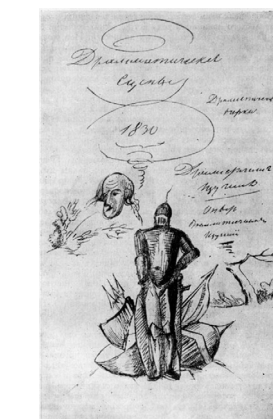 Драматическія
сцены
1830
Драматическіе
очерки
Драматическія
изученія
Опытъ
Драматическихъ
изученій